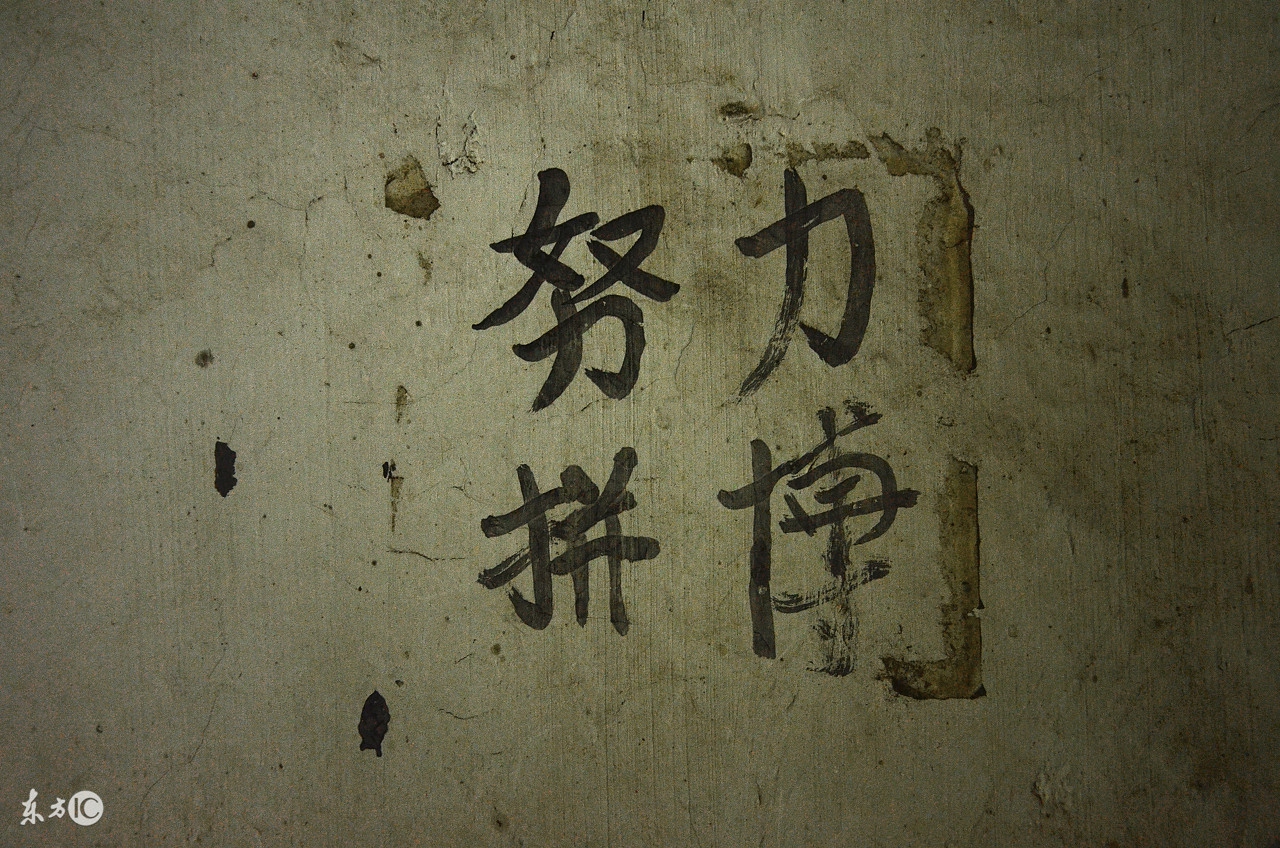 努力
拼博
东方IC